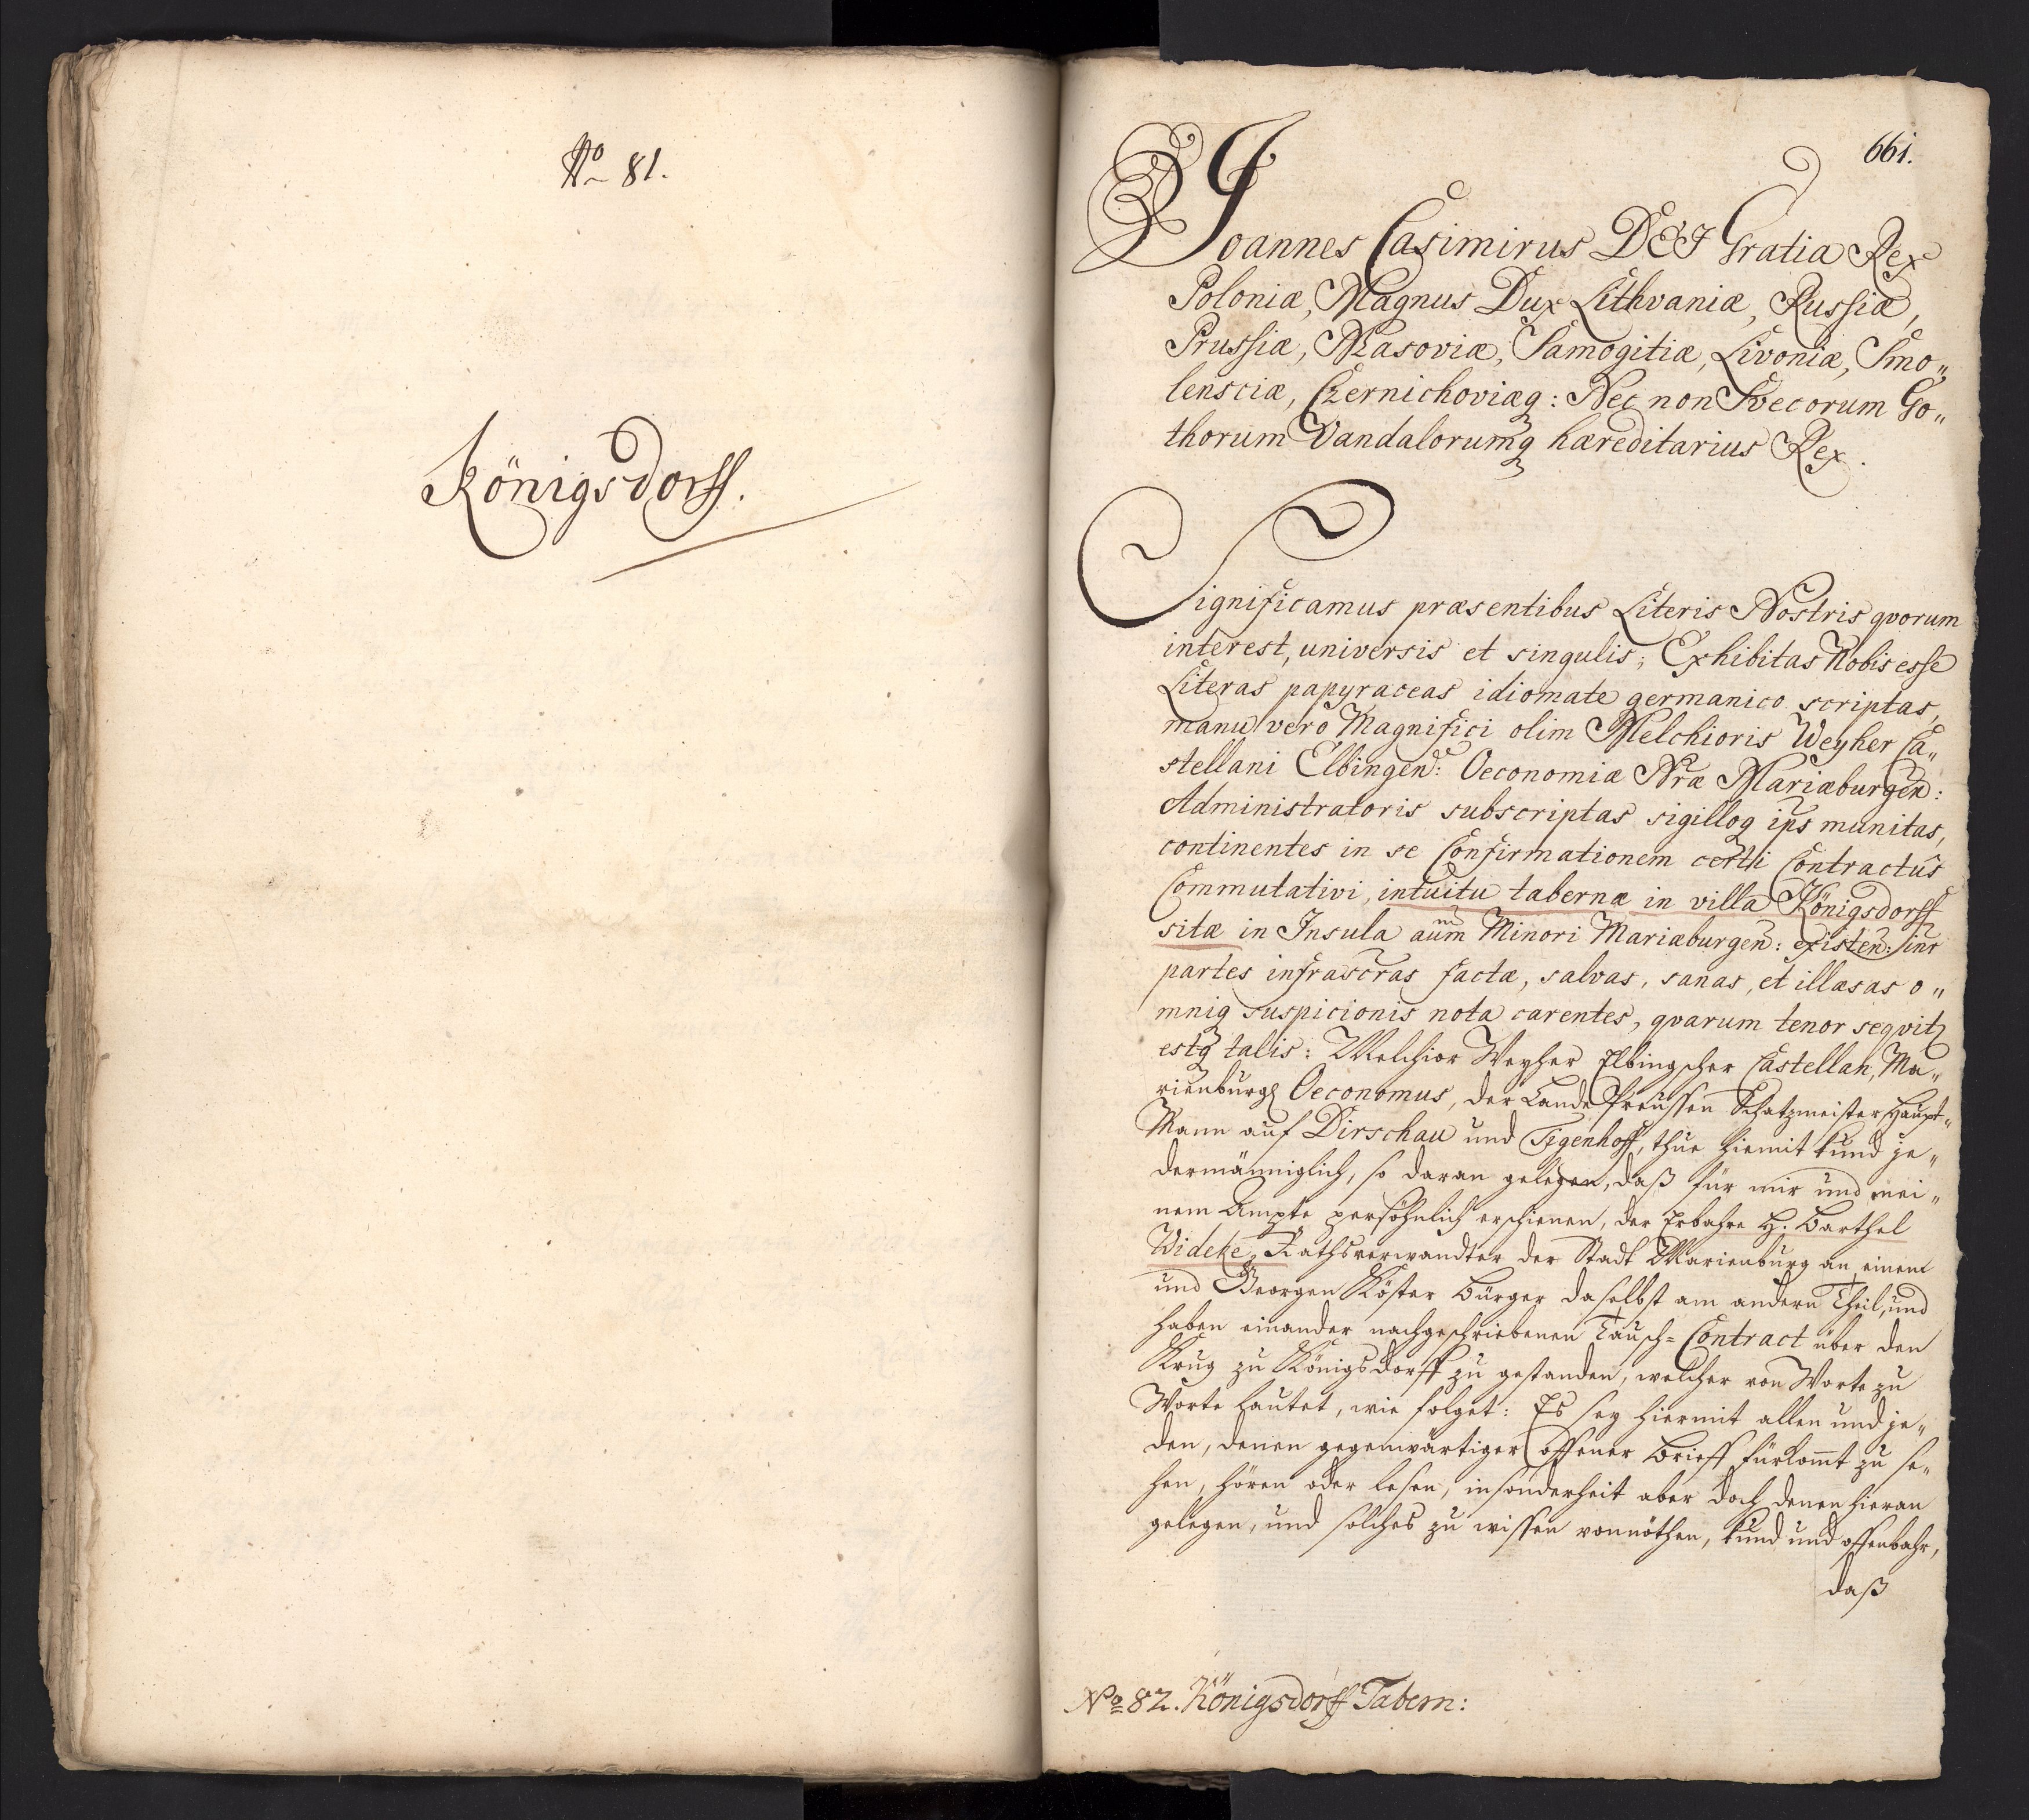 No 81.
Königsdorff.
661.
Joannes Casimirus DEI Gratia Rex
Poloniæ, Magnus Dux Lithvaniæ, Russiæ,
Prussiæ, Masoviæ, Samogitiæ, Livoniæ, Smo„
lensciæ, Czernichoviæq: Nec non Svecorum Go„
thorum Vandalorumq hæreditarius Rex.
Significamus præsentibus Literis Nostris qvorum
interest, universis et singulis; Exhibitas Nobis esse
Literas papyraceas idiomate germanico scriptas,
manu vero Magnifici olim Melchioris Weyher Ca„
stellani Elbingen: Oeconomiæ Nræ Mariæburgen:
Administratoris subscriptas sigilloq ips munitas,
continentes in se Confirmationem certi Contractus
Commutativi, intuitu tabernæ in villa Königsdorff
sitæ in Insula aūm Minori Mariæburgen: existen: inr
partes infrascras factæ, salvas, sanas, et illæsas o„
mniq suspicionis nota carentes, qvarum tenor seqvit
estq talis: Melchior Weyher Elbingscher Castellan, Ma„
rienburg Oeconomus, der Lande Preussen Schatzmeister Haupt„
Mann auf Dirschau und Tigenhoff, thue hiemit kund je„
dermänniglich, so daran gelegen, daß für mir und mei„
nem Ampte persöhnlich erschienen, der Erbahre H. Barthel
Wideke, Rathsverwandter der Stadt Marienburg an einem
und Georgen Köster Bürger daselbst am andern Theil, und
haben einander nachgeschriebenen Tausch-Contract über den
Krug zu Königsdorff zu gestanden, welcher von Worte zu
Worte lautet, wie folget: Es sey hiermit allen und je„
den, denen gegenwärtiger offener Brieff fürkom̄t zu se„
hen, hören oder lesen, insonderheit aber doch denen hieran
gelegen, und solches zu wissen vonnöthen, kund und offenbahr,
daß
No 82. Königsdorff Tabern: